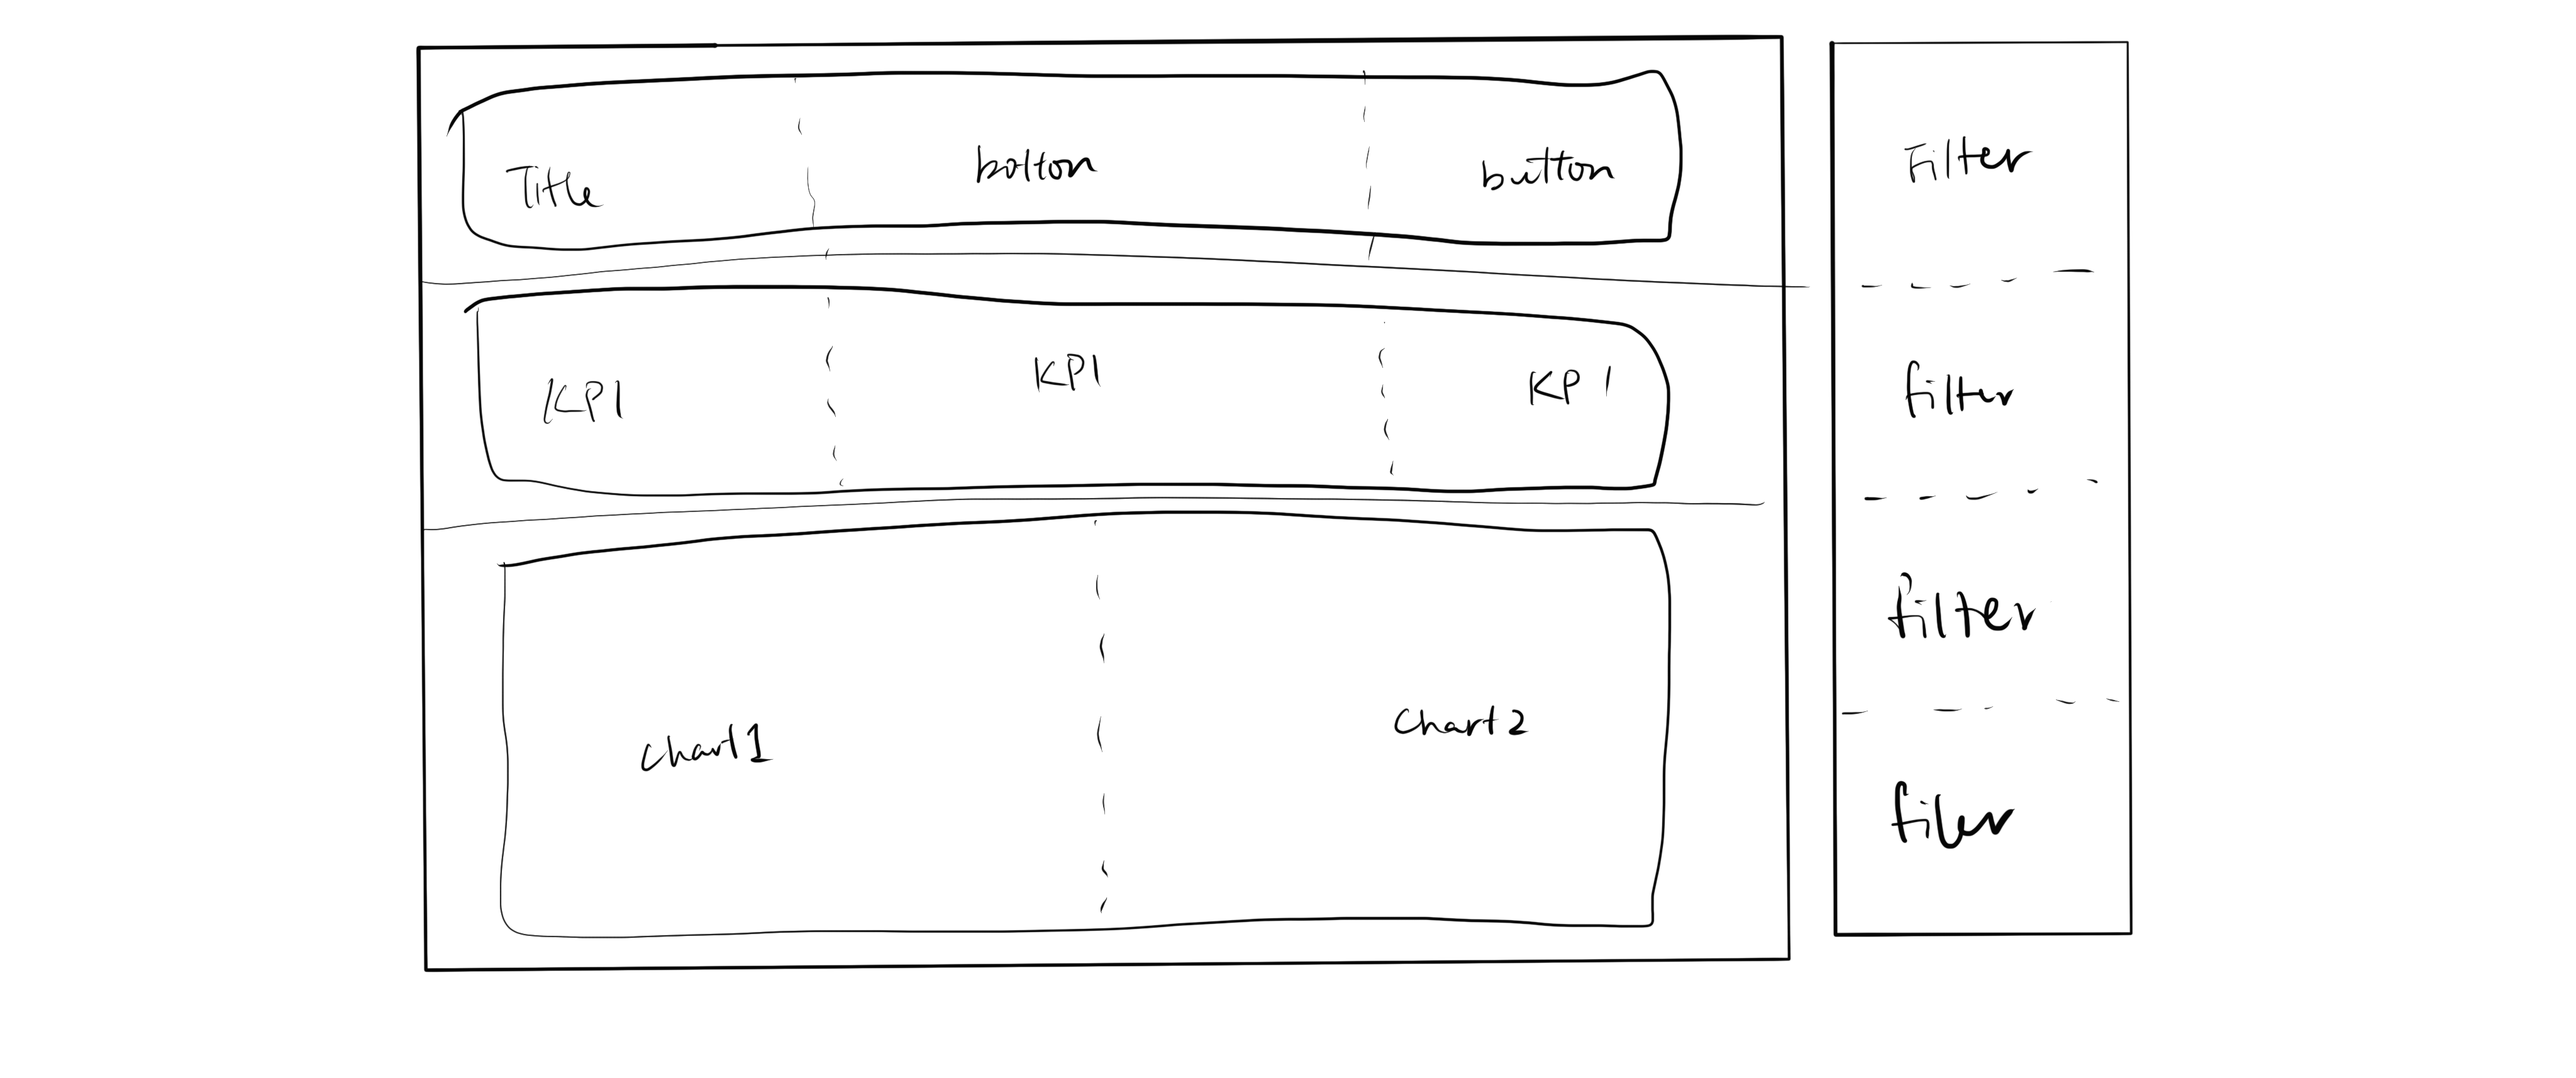 Title bolton button
KPI KPI KPI
Chart1 Chart2
Filter
filter
filter
filer